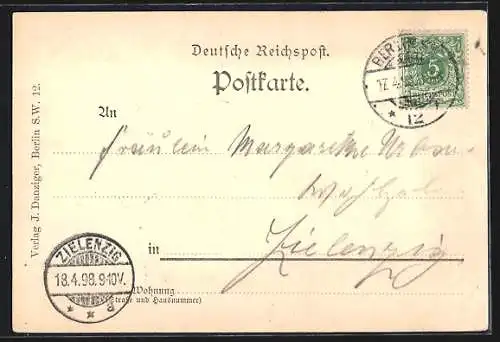 Deutsche Reichspost.
Postkarte.
BERLIN
17.4.98
12
5
An
Fräulein Margarethe
Wohlgeb.
in Zielenzig
Wohnung
(Straße und Hausnummer)
ZIELENZIG
18.4.98.9-10V.
* * a
Verlag J. Danziger, Berlin S.W. 12.